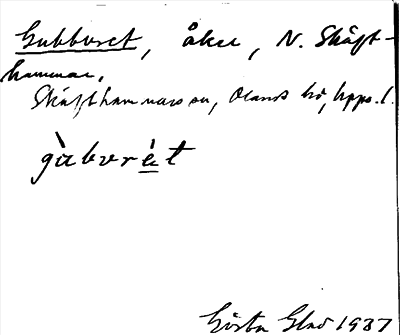 Gubboret, åker, N. Skäft-
hammar,
Skäfthammars sn, Olands hd, Upps. l.
gùborèt
Gösta Glad 1937